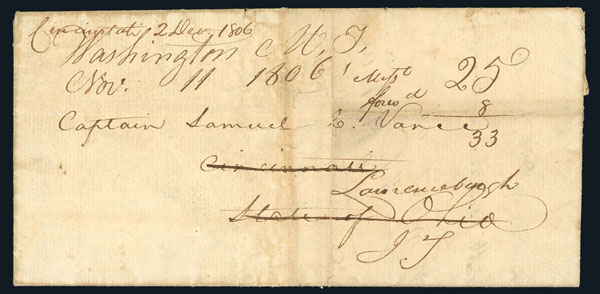 Cincinnati 2 Dec 1806
Washington M. T,
Nov. 11 1806
25
forw d 8
33
Captain Samuel C. Vance
Cincinnati
Lawrenceburgh
State of Ohio
I T